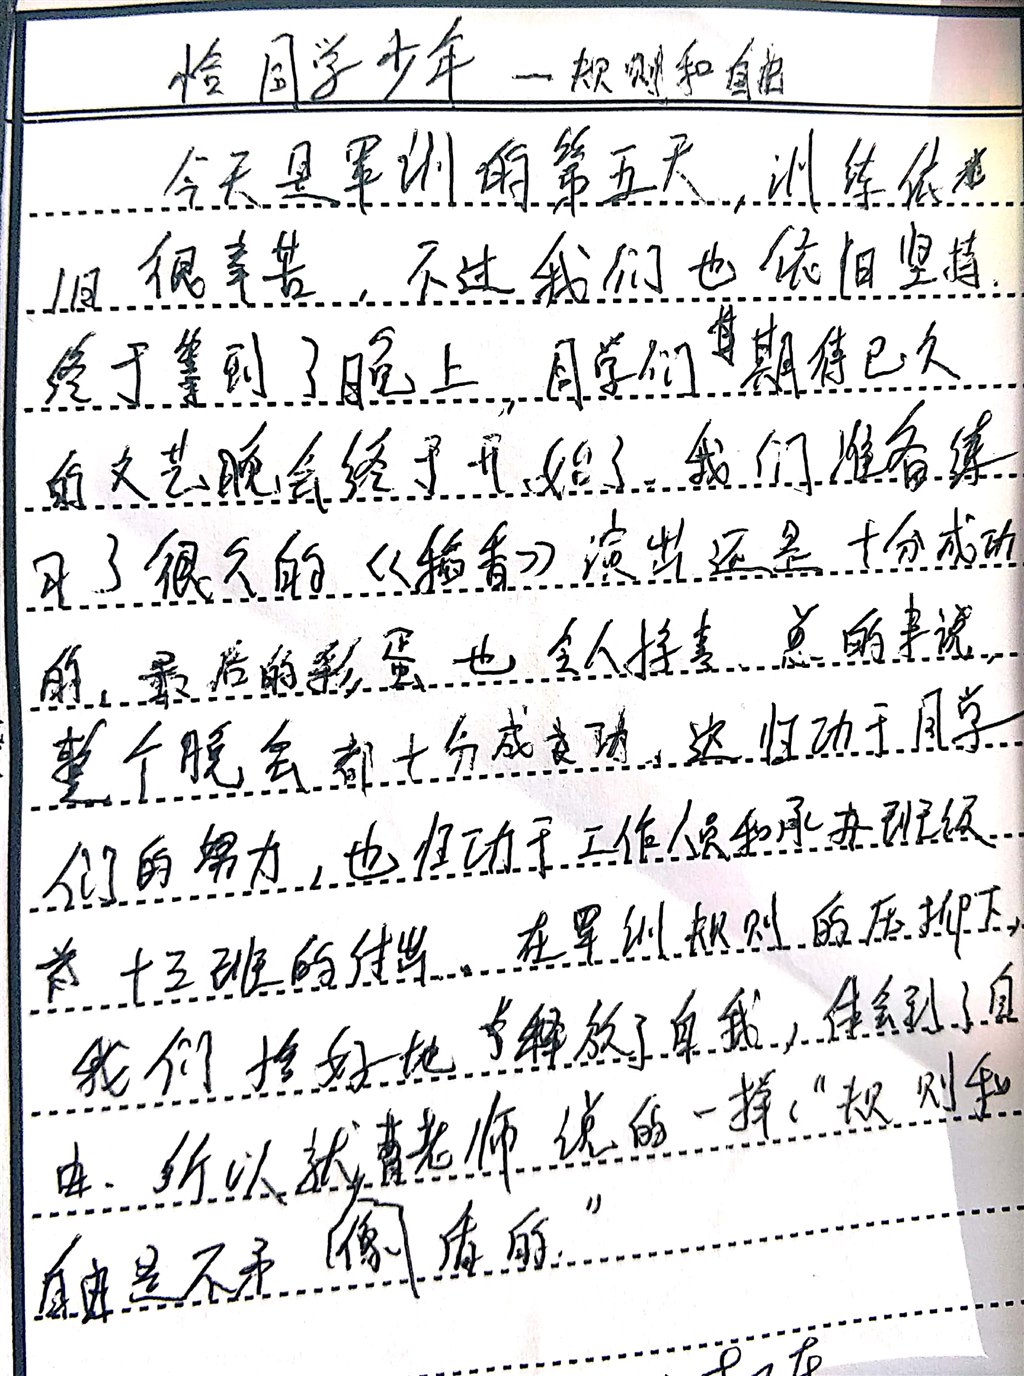 恰同学少年 —规则和自由
今天是军训的第五天，训练依
旧很辛苦，不过我们也依旧坚持.
终于等到了晚上，同学们期待已久
的文艺晚会终于开始了.我们准备练
习了很久的《稻香》演出还是十分成功
的，最后的彩蛋也令人惊喜.总的来说，
整个晚会都十分成功，这归功于同学
们的努力，也归功于工作人员和承办班级
高十三班的付出.在军训规则的压抑下，
我们恰好地释放了自我，体会到了自
由.所以就像曹老师说的一样，“规则和
自由是不矛盾的.”